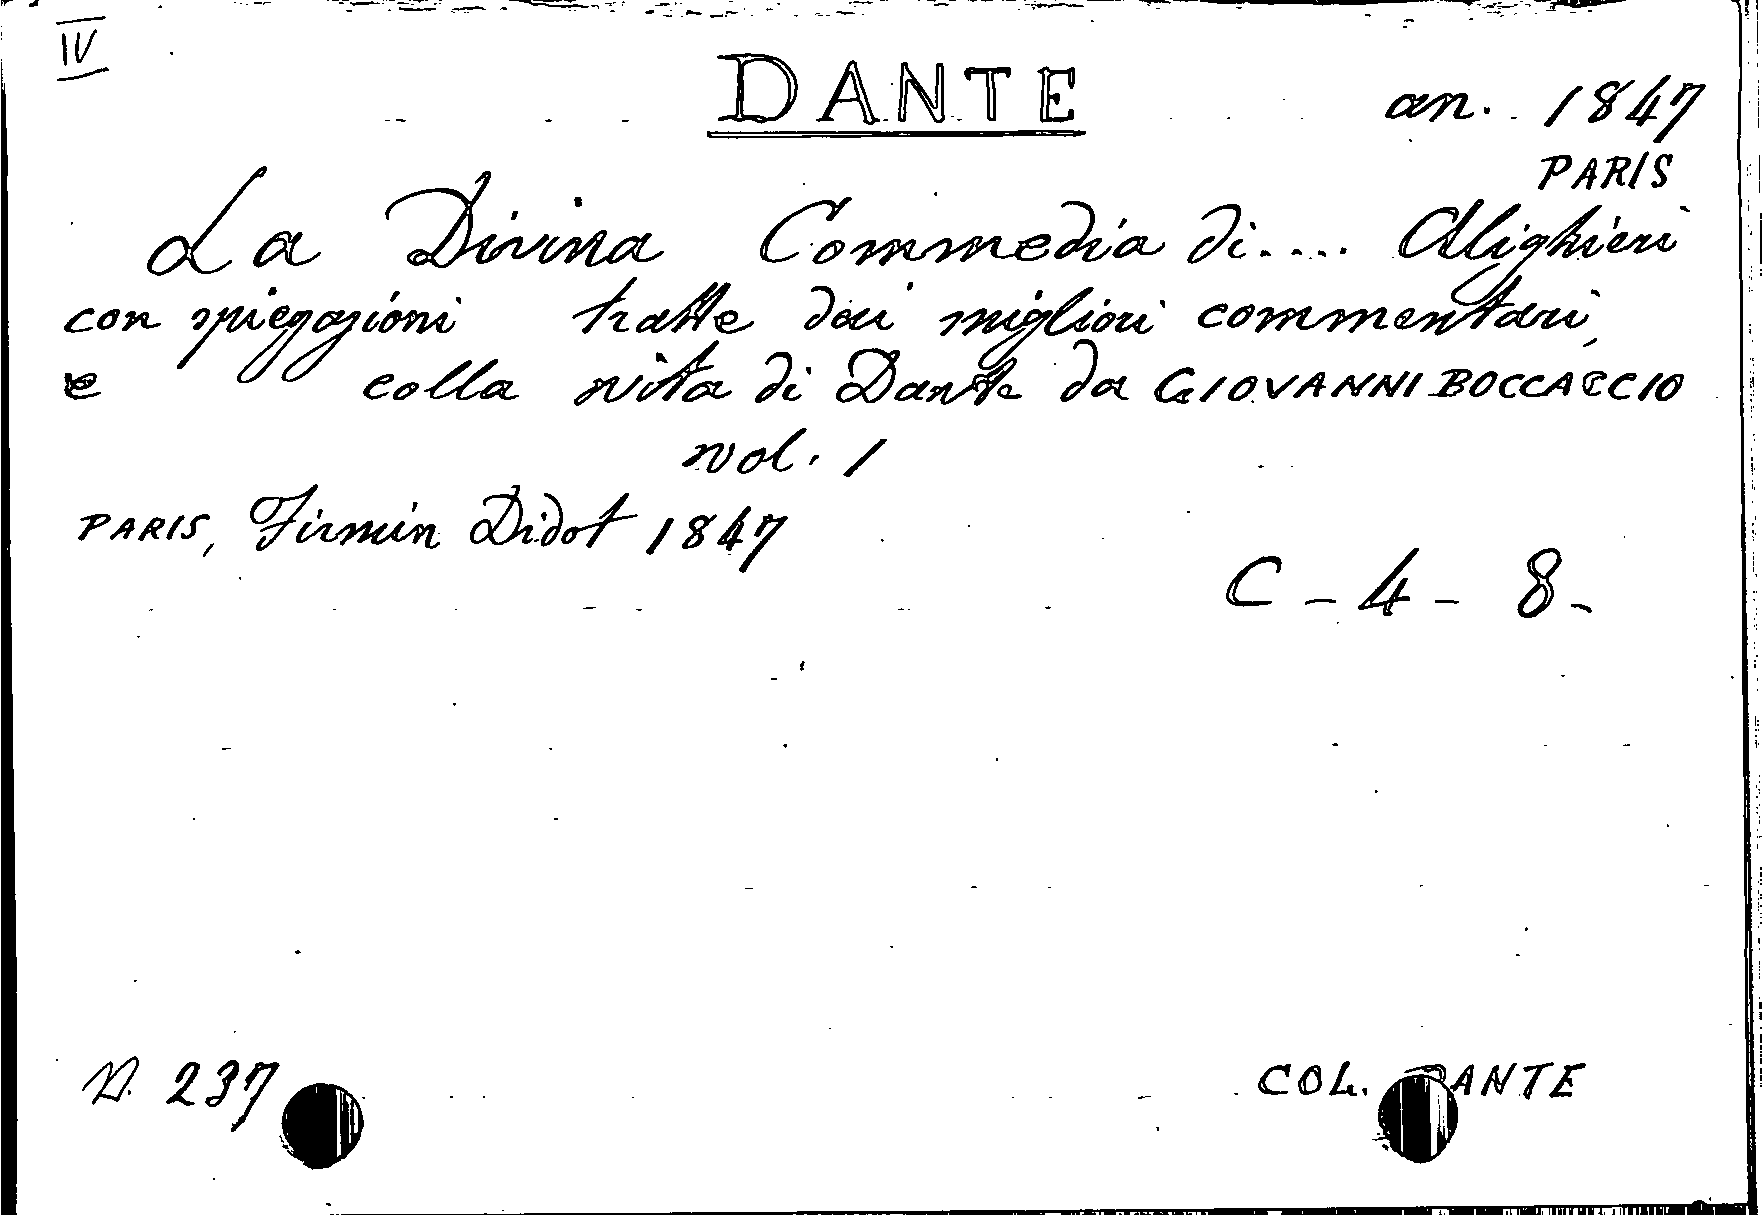 IV
DANTE
an. 1847
PARIS
La Divina Commedia di.... Alighieri
con spiegazioni tratte dai migliori commentari,
e colla vita di Dante da GIOVANNI BOCCACCIO
vol. 1
PARIS, Firmin Didot 1847
C - 4 - 8 -
N. 237
COL. DANTE